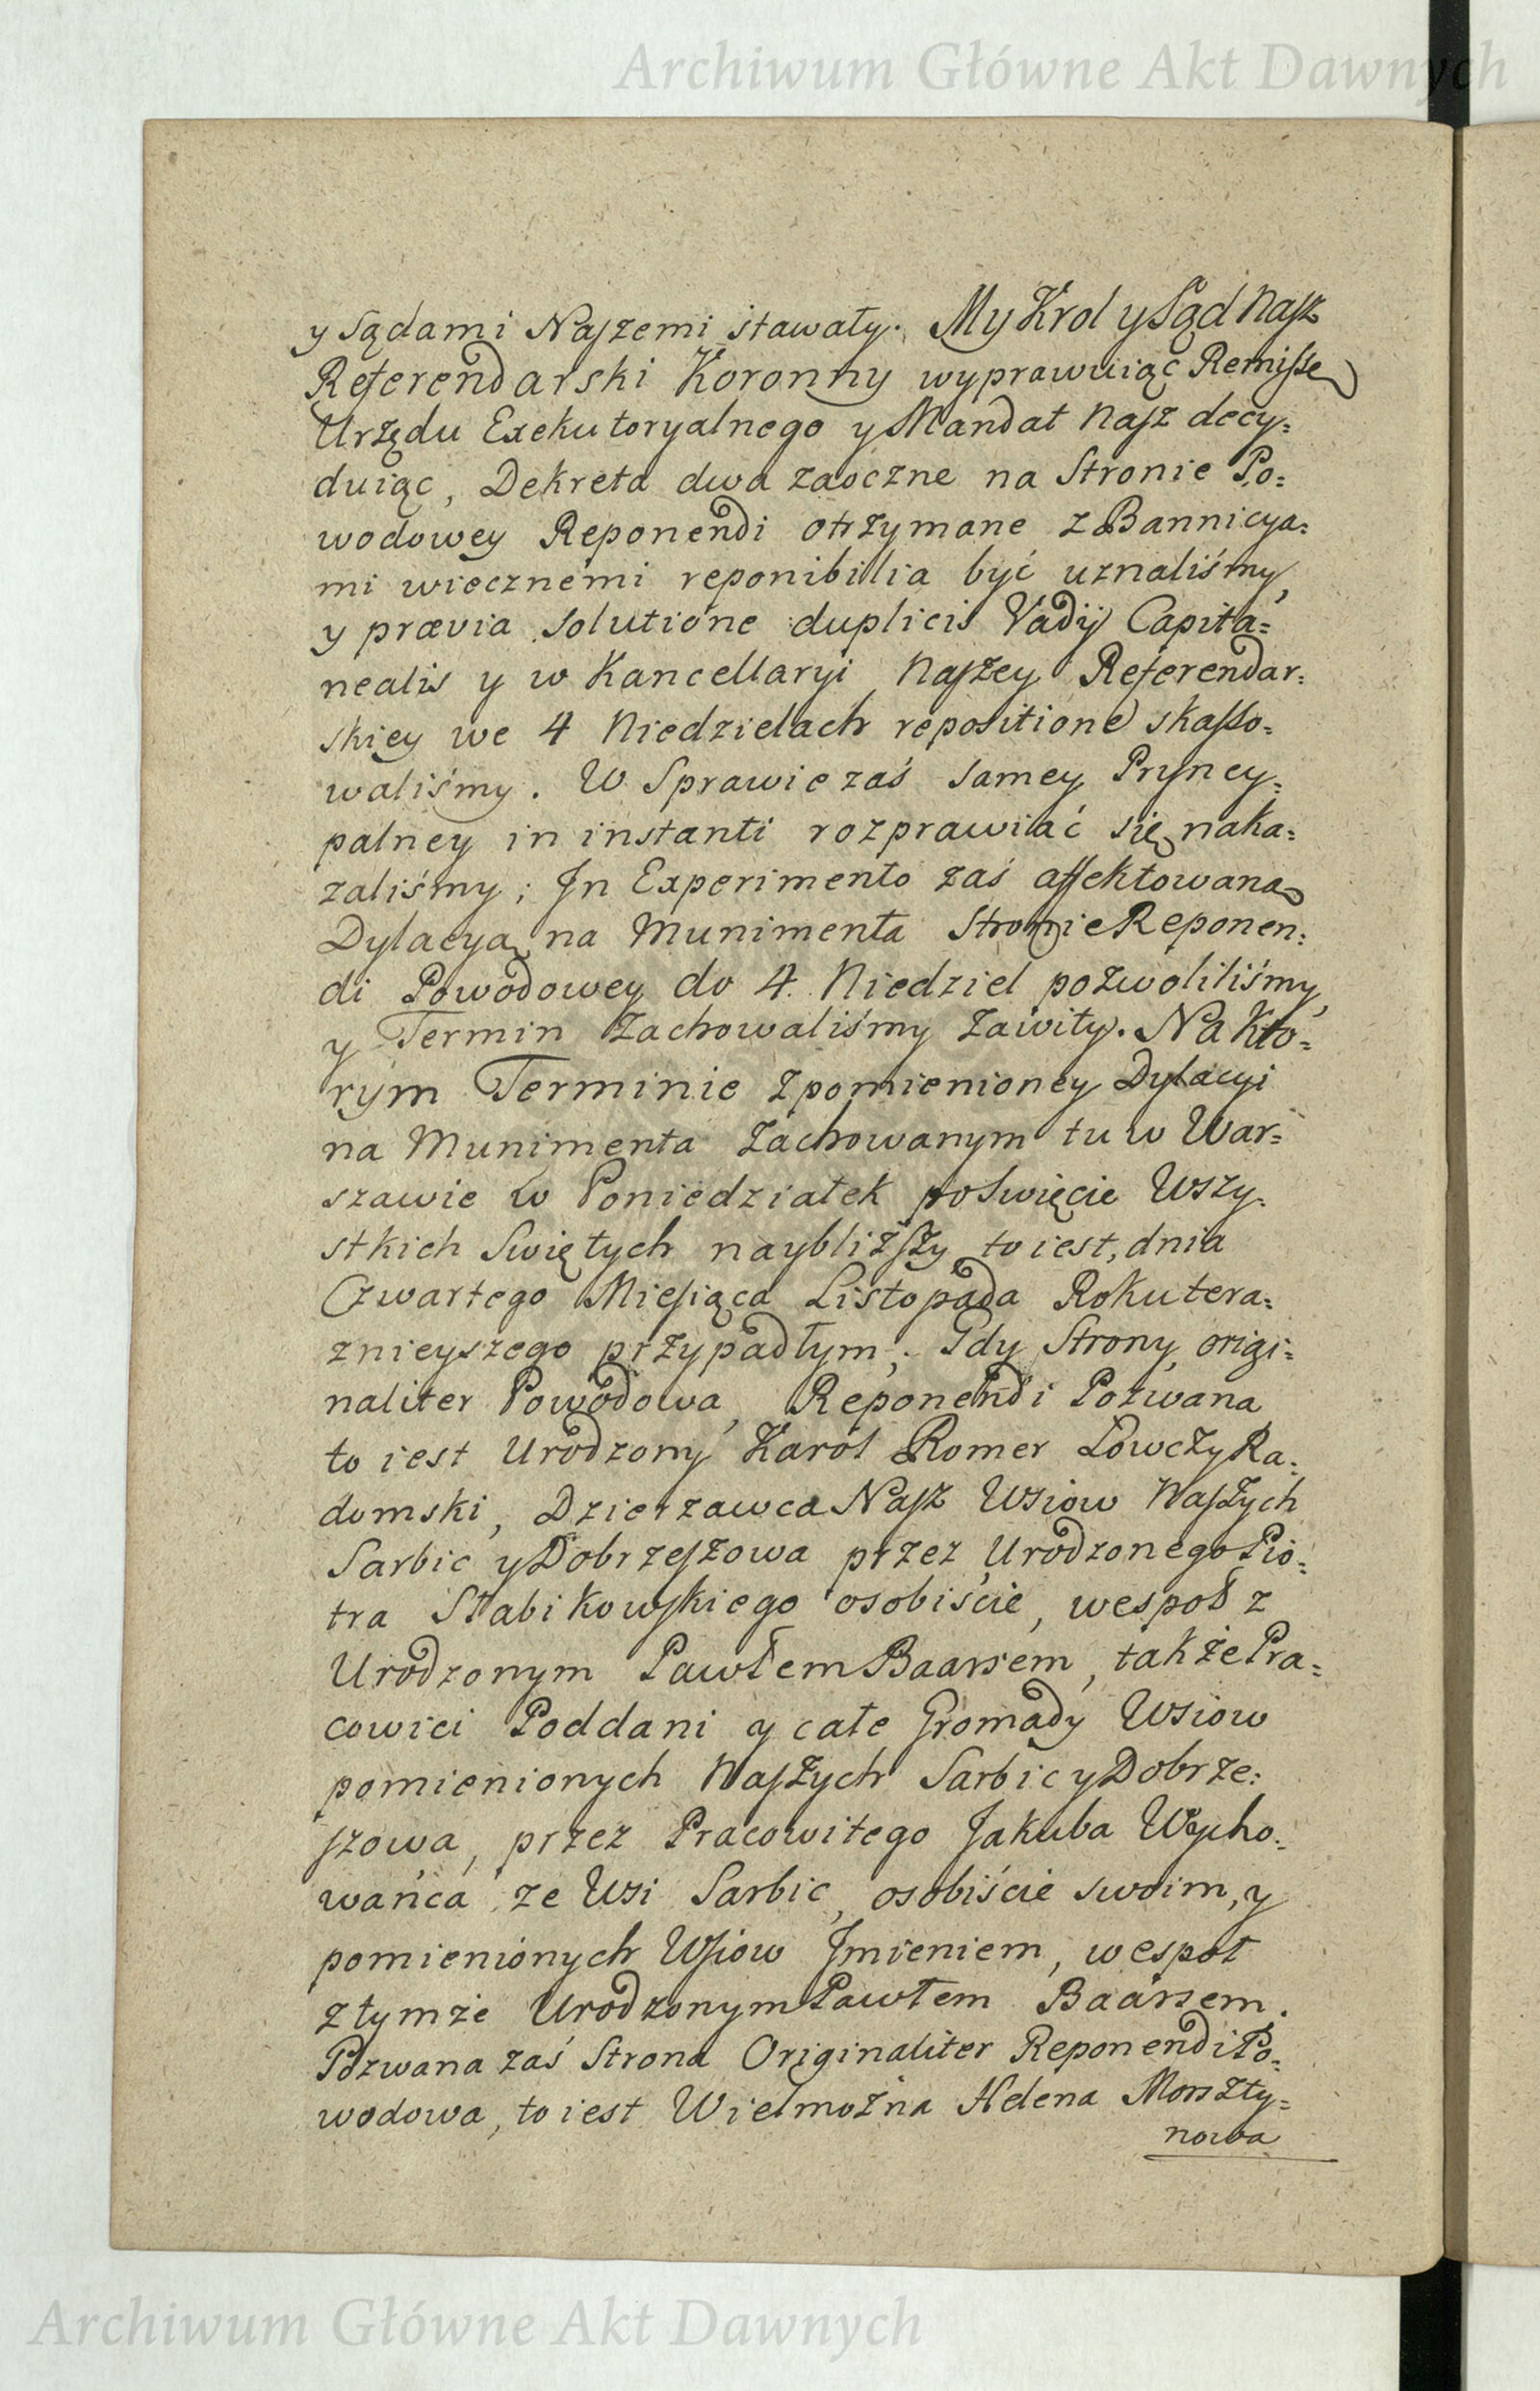 Archiwum Główne Akt Dawnych
y Sądami Naszemi stawały. My Krol y Sąd Nasz
Referendarski Koronny wyprawuiąc Remissę
Urzędu Exekutoryalnego y Mandat Nasz decy=
duiąc, Dekreta dwa zaoczne na Stronie Po=
wodowey Reponendi otrzymane z Bannicya=
mi wiecznemi reponibilia być uznaliśmy,
y prævia solutione duplicis Vadij Capita=
nealis y w Kancellaryi Naszey Referendar=
skiey we 4 Niedzielach repositione skasso=
waliśmy. W Sprawie zaś samey Pryncy=
palney in instanti rozprawiać się naka=
zaliśmy; Jn Experimento zaś affektowaną
Dylacyą na Munimenta Stronie Reponen=
di Powodowey do 4. Niedziel pozwoliliśmy,
y Termin zachowaliśmy zawity. Na Kto=
rym Terminie z pomienioney Dylacyi
na Munimenta zachowanym tu w War=
szawie w Poniedziałek po Swięcie Wszy=
stkich Swiętych naybliższy to iest, dnia
Czwartego Miesiąca Listopada Roku tera=
znieyszego przypadłym; Gdy Strony origi=
naliter Powodowa, Reponendi Pozwana
to iest Urodzony Karol Romer Łowczy Ra=
domski, Dzierzawca Nasz Wsiow Naszych
Sarbic y Dobrzeszowa przez Urodzonego Pio=
tra Słabikowskiego osobiście, wespoł z
Urodzonym Pawłem Baarsem, także Pra=
cowici Poddani y całe Gromady Wsiow
pomienionych Naszych Sarbic y Dobrze=
szowa, przez Pracowitego Jakuba Wycho=
wańca ze Wsi Sarbic, osobiście swoim, y
pomienionych Wsiow Jmieniem, wespoł
z tymże Urodzonym Pawłem Baarsem.
Pozwana zaś Strona Originaliter Reponendi Po=
wodowa, to iest Wielmożna Helena Morszty=
nowa
Archiwum Główne Akt Dawnych